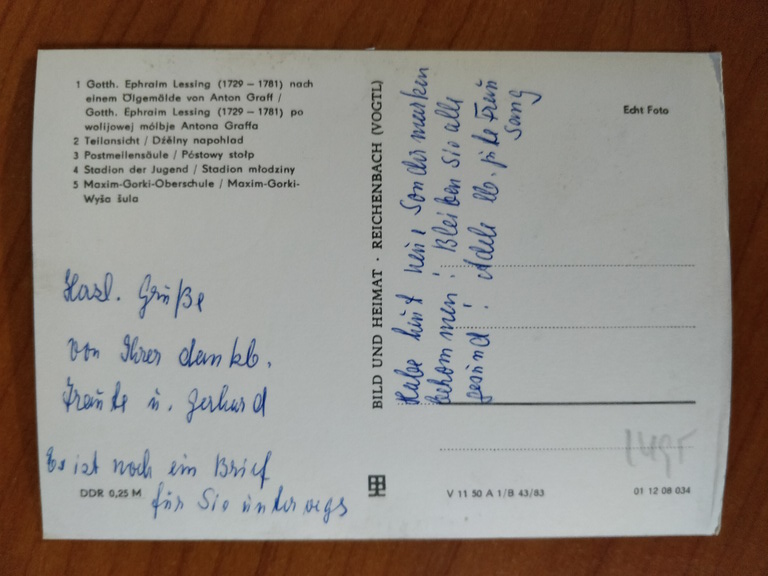 1 Gotth. Ephraim Lessing (1729 – 1781) nach
einem Ölgemälde von Anton Graff /
Gotth. Ephraim Lessing (1729 – 1781) po
wolijowej mólbje Antona Graffa
2 Teilansicht / Dźělny napohlad
3 Postmeilensäule / Póstowy stołp
4 Stadion der Jugend / Stadion młodziny
5 Maxim-Gorki-Oberschule / Maxim-Gorki-
Wyša šula
Herzl. Grüße
von Ihrer dankb.
Traute u. Gerhard
Es ist noch ein Brief
für Sie unterwegs
DDR 0,25 M
BILD UND HEIMAT · REICHENBACH (VOGTL)
Habe heut neue Sondermarken
bekommen! Bleiben Sie alle
gesund! Adele lb. gute
Echt Foto
V 11 50 A 1/B 43/83
01 12 08 034